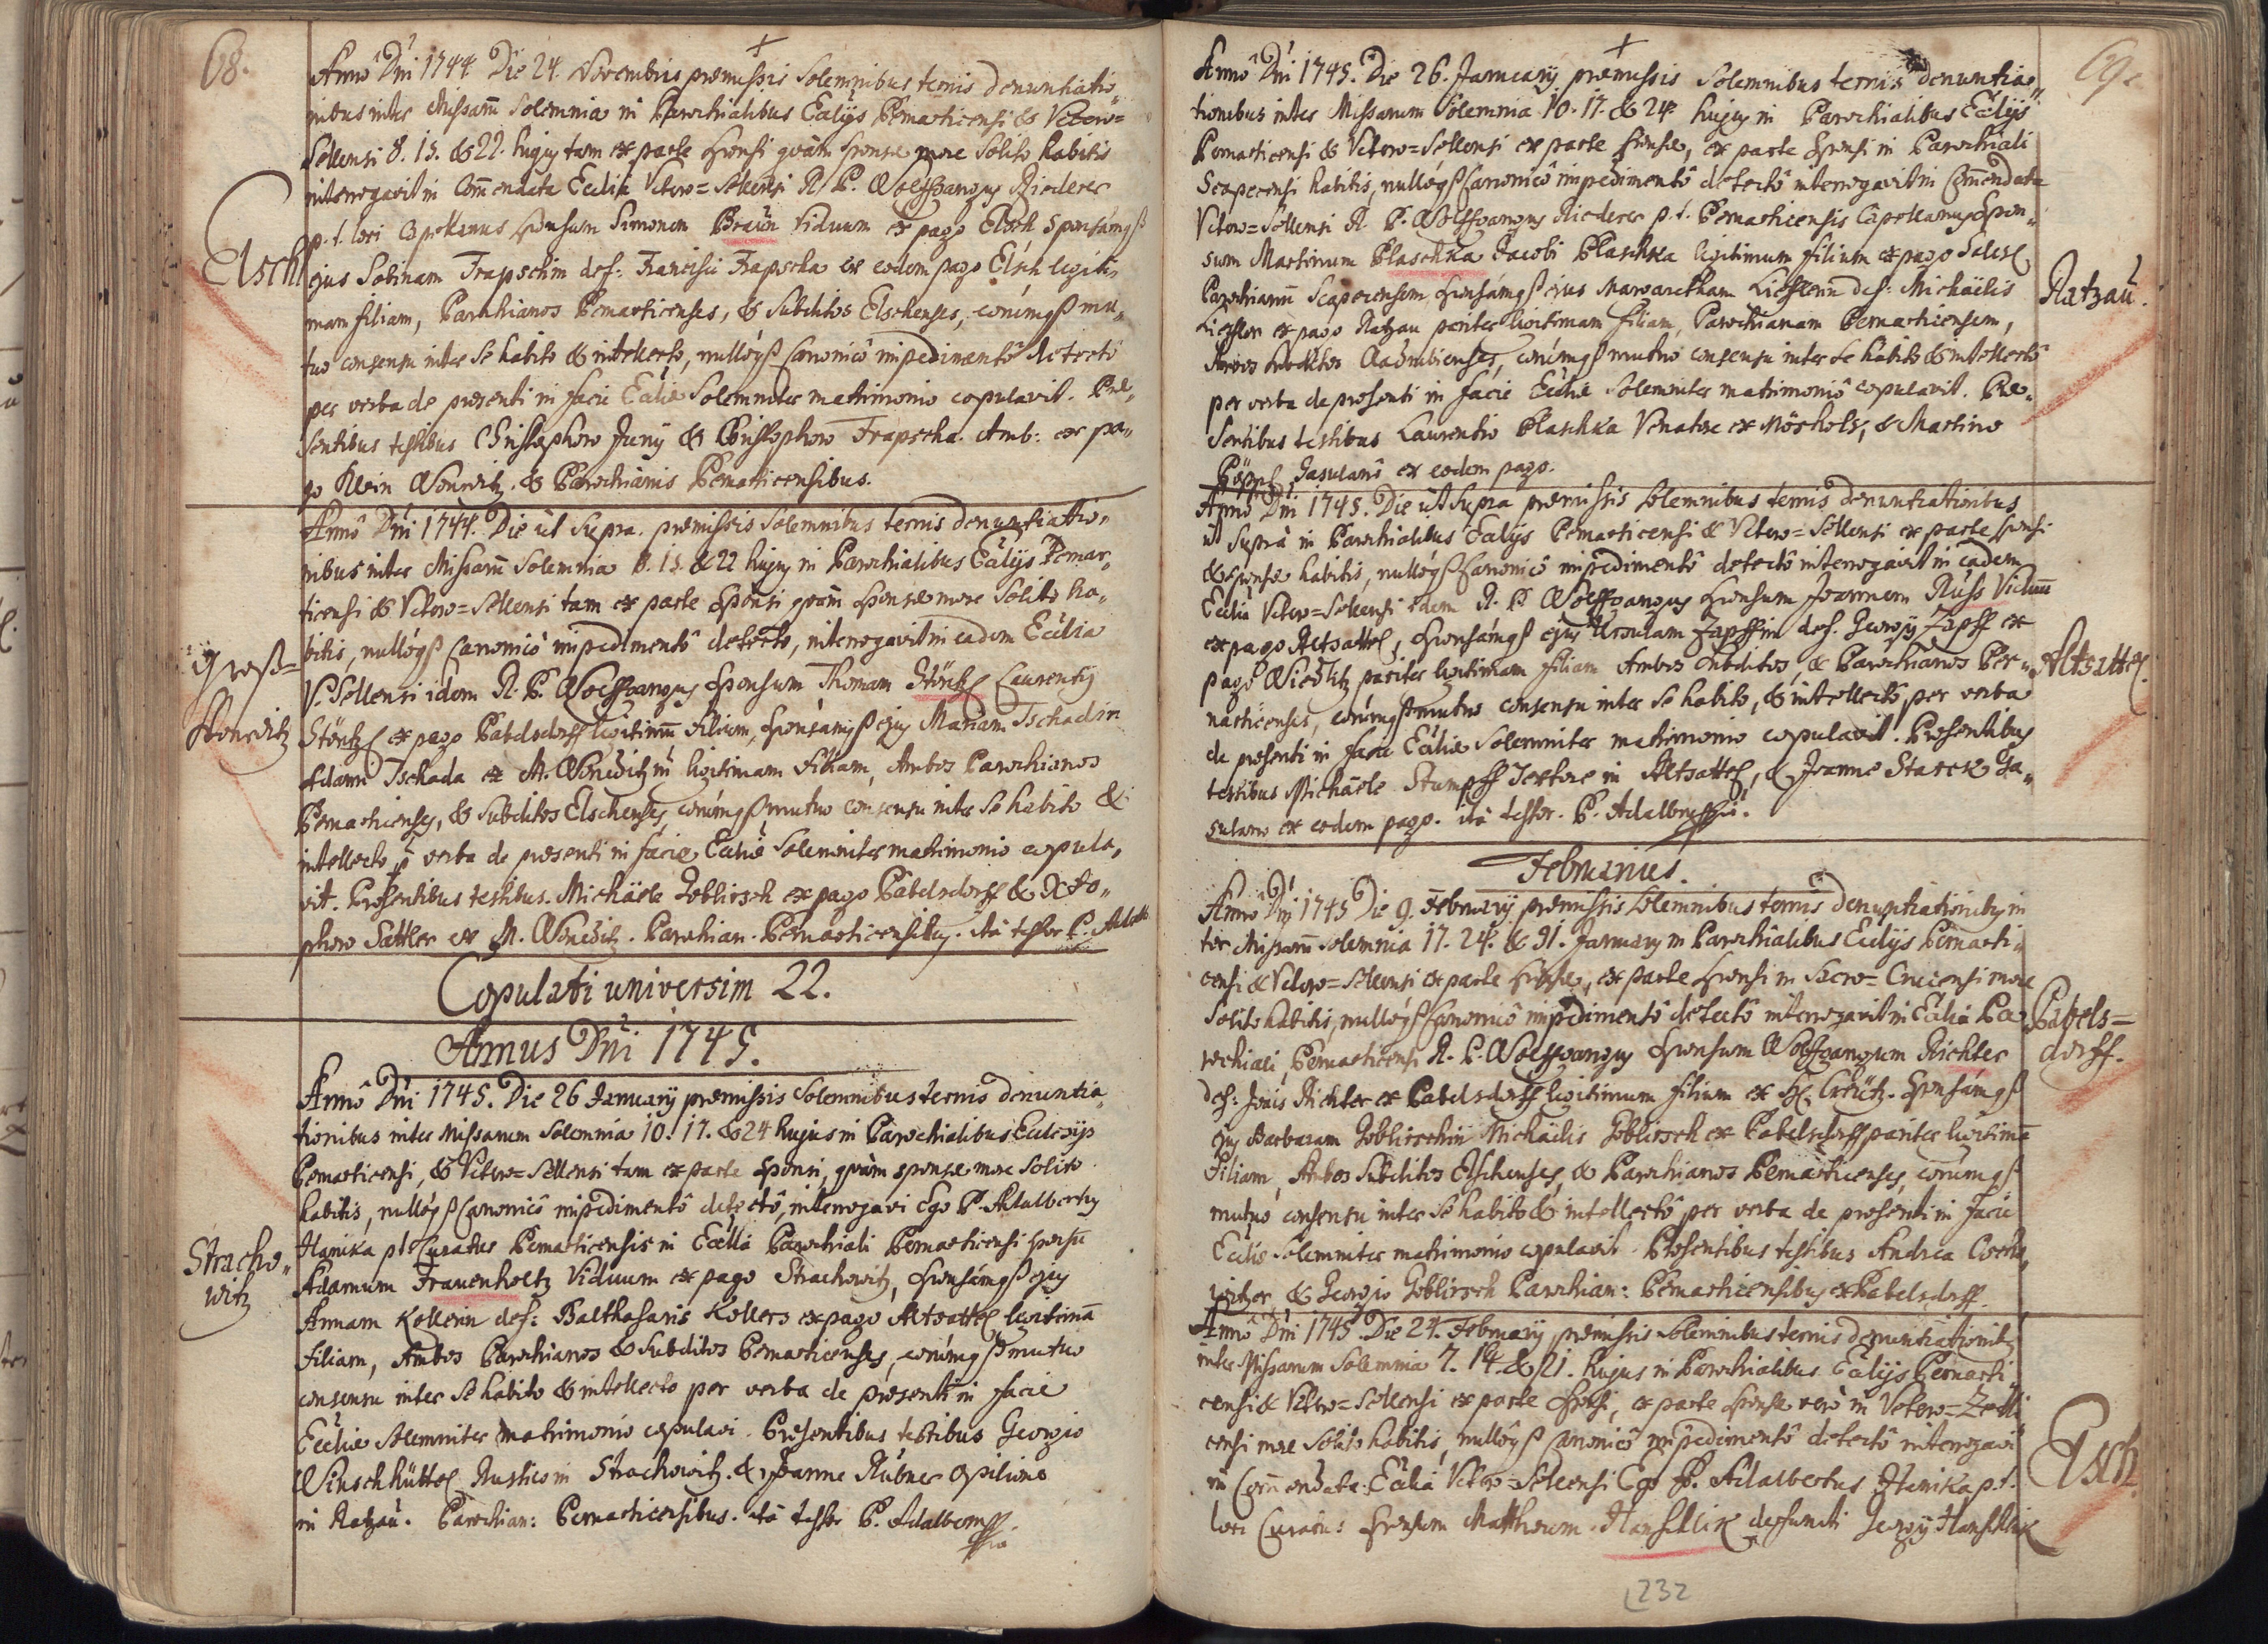 68.
Annô Dñi 1744 Die 24. Novembris præmissis Solemnibus ternis denuntiatio„
nibus inter Missarũ Solemnia in Parochialibus Eccliis Pernarticensi & Vetero=
Sellensi 8. 15. & 22. hujus tam ex parte sponsi quàm sponsæ more Solito habitis
interrogavit in Com̄endata Ecclia Vetero=Sellensi R. P. Wolffgangus Riederer
p. t. loci Capellanus sponsum Simonem Braun Viduum ex pago Elsch sponsámqȝ
Elsch
ejus Sabinam Trapschin def: Francisci Trapscha ex eodem pago Elsch legiti„
mam filiam, Parochianos Pernarticenses, & Subditos Elschenses, eorúmqȝ mu„
tuo consensu inter Se habito & intellecto, nullóqȝ Canonicô impedimentô detectô
per verba de præsenti in facie Eccliæ Solemniter matrimonio copulavit. Præ„
sentibus testibus Christophoro Juny & Christophoro Trapscha. Amb: ex pa„
go Klein Wonetitz. & Parochianis Pernarticensibus.
Annô Dñi 1744. Die ut Supra. præmissis Solemnibus ternis denuntiatio„
nibus inter Missarũ Solemnia 8. 15. & 22 hujus in Parochialibus Eccliis Pernar„
ticensi & Vetero=Sellensi tam ex parte Sponsi quàm Sponsæ more Solito ha„
bitis, nullóqȝ Canonicô impedimentô detecto, interrogavit in eadem Ecclia
Groß=
V. Sellensi idem R. P. Wolffgangus Sponsum Thomam Störtzl Laurentij
Störtzl ex pago Pabelsdorff legitimũ filium, sponsamqȝ ejus Mariam Tschadin
Adami Tschada ex M. Wonetitz legitimam Filiam, Ambos Parochianos
Pernarticenses, & Subditos Elschenses, eorúmqȝ mutuo consensu inter Se habito &
intellecto p verba de præsenti in facie Eccliæ Solemniter matrimonio copula„
vit. Præsentibus testibus. Michäele Goblirsch ex pago Pabelsdorff & Xsto„
phoro Sattler ex M. Wonetitz. Parochian. Pernarticensibus. ità testor P. Adalb
Copulati universim 22.
Annus Dñi 1745.
Annô Dñi 1745. Die 26 January præmissis Solemnibus ternis denuntia„
tionibus inter Missarum Solemnia 10. 17. & 24 hujus in Parochialibus Ecclesiis
Pernarticensi, & Vetero=Sellensi tam ex parte Sponsi, quàm sponsæ more solito
habitis, nullóqȝ Canonicô impedimentô detectô, interrogavi Ego P. Adalbertus
Hanika p. t. Curatus Pernarticensis in Ecclia Parochiali Pernarticensi sponsũ
Stracho„
witz
Adamum Frauenholtz Viduum ex pago Strachowitz, sponsámqȝ ejus
Annam Kollerin def: Balthasaris Kollers ex pago Altsattel legitimã
Filiam, Ambos Parochianos & Subditos Pernarticenses, eorúmqȝ mutuo
consensu inter Se habito & intellecto per verba de præsenti in facie
Eccliæ Solemniter matrimonio copulavi. Præsentibus testibus Georgio
Winschhüttel Rustico in Strachowitz. & Joanne Rübner opilione
in Ratzau. Parochian: Pernarticensibus. ità testor P. Adalbertus
69.
Annô Dñi 1745. Die 26. January præmissis Solemnibus ternis denuntia„
tionibus inter Missarum Solemnia 10. 17. & 24 hujus in Parochialibus Eccliis
Pernarticensi & Vetero=Sellensi ex parte sponsæ, ex parte Sponsi in Parochiali
Scaperensi habitis, nullóqȝ Canonicô impedimentô detectô interrogavit in Com̄endata
Vetero=Sellensi R. P. Wolffgangus Riederer p. t. Pernarticensis Capellanus Spon„
sum Martinum Plaschka Jacobi Plaschka legitimum filium ex pago
Parochianũ Scaperensem, sponsámqȝ ejus Margaretham def: Michäelis
Ratzau.
ex pago Ratzau pariter legitimam filiam, Parochianam Pernarticensem,
Ambos subditos eorúmqȝ mutuo consensu inter se habito & intellectô
per verba de præsenti in facie Eccliæ Solemniter matrimoniô copulavit. Præ„
sentibus testibus Laurentio Plaschka Venatore ex Mösholz, & Martino
Pöpperl Gasulario ex eodem pago.
Annô Dñi 1745. Die ut Supra præmissis Solemnibus ternis denuntiationibus
ut Suprà in Parochialibus Eccliis Pernarticensi & Vetero=Sellensi ex parte sponsi
& sponsæ habitis, nullóqȝ Canonicô impedimentô detectô interrogavit in eadem
Ecclia Vetero=Sellensi idem R. P. Wolffgangus sponsum Joannem Russ Viduũ
ex pago Altsattel, sponsámqȝ ejus Ursulam Zapffin def. Georgij Zapff ex
Altsattel.
pago Wieblitz pariter legitimam filiam Ambos subditos, & Parochianos Per„
narticenses, eorúmqȝ mutuo consensu inter Se habito, & intellectô, per verba
de præsenti in facie Eccliæ Solemniter matrimonio copulavit. Præsentibus
testibus Michäele Stumpff Textore in Altsattel, & Joanne Starck Ga„
sulario ex eodem pago. ità testor. P. Adalbertus
Februarius.
Annô Dñi 1745 Die 9. February præmissis Solemnibus ternis denuntiationibus in
ter Missarũ Solemnia 17. 24. & 31. January in Parochialibus Eccliis Pernarti„
censi & Vetero=Sellensi ex parte sponsæ, ex parte sponsi in Sacro=Crucensi more
Solito habitis, nullóqȝ Canonicô impedimentô detectô interrogavit in Ecclia Pa
Pabels=
dorff.
rochiali Pernarticensi R. P. Wolffgangus sponsum Wolffgangum Richter
def: Joãis Richter ex Pabelsdorff legitimum filium ex H. Creütz. sponsámqȝ
ejus Barbaram Goblirschin Michäelis Goblirsch ex Pabelsdorff pariter legitimã
Filiam, Ambos Subditos Elschenses, & Parochianos Pernarticenses, eorúmqȝ
mutuo consensu inter Se habito & intellectô per verba de præsenti in facie
Eccliæ Solemniter matrimonio copulavit. Præsentibus testibus Andrea
& Georgio Goblirsch Parochian: Pernarticensibus ex Pabelsdorff.
Annô Dñi 1745 Die 24. February præmissis Solemnibus ternis denuntiationibȝ
inter Missarum Solemnia 7. 14. & 21. hujus in Parochialibus Eccliis Pernarti„
censi & Vetero=Sellensi ex parte sponsi, ex parte sponsæ verò in Vetero=Zedli„
censi more Solito habitis, nullôqȝ Canonicô impedimentô detectô interrogavi
Elsch
in Com̄endata Ecclia Vetero=Sellensi Ego P. Adalbertus Hanika p. t.
loci Curatus sponsum Mathæum Hanschlik defuncti Georgij Hanschlik
232